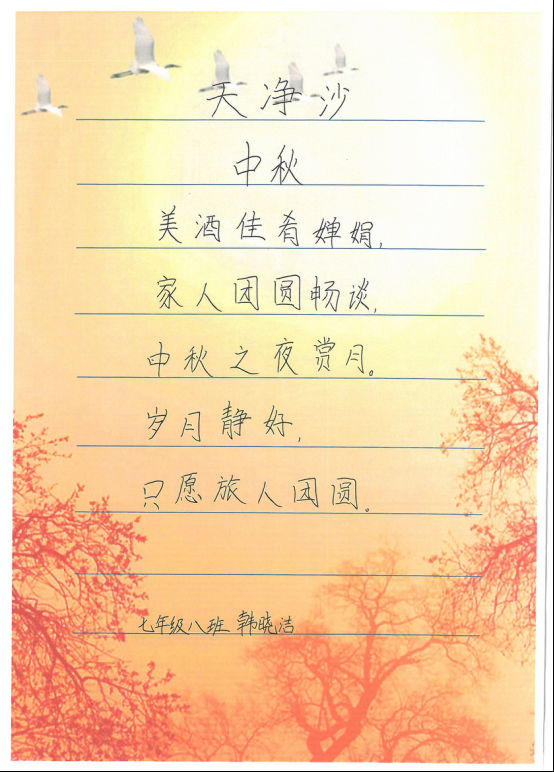 天净沙
中秋
美酒佳肴婵娟，
家人团圆畅谈，
中秋之夜赏月。
岁月静好，
只愿旅人团圆。
七年级八班 韩晓洁